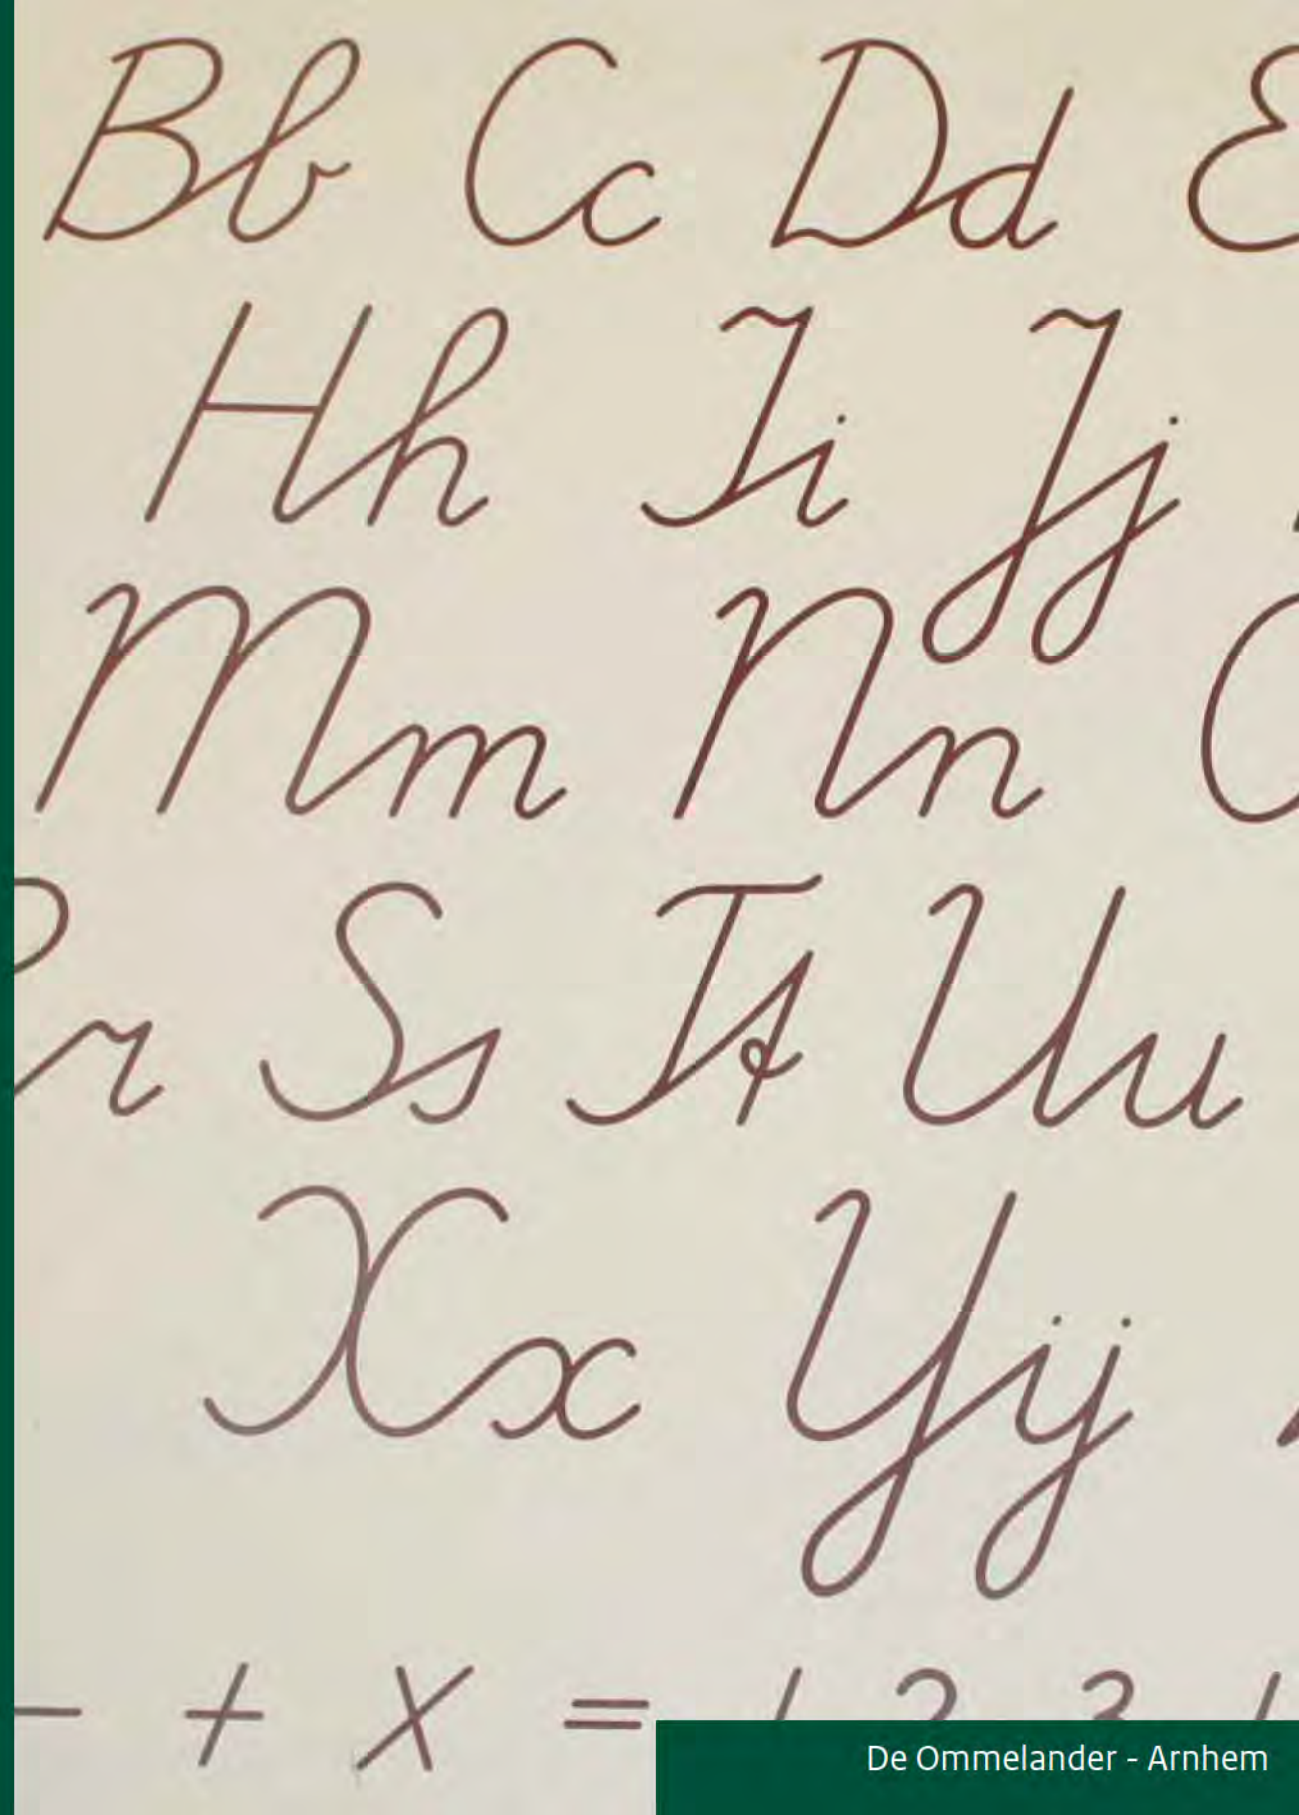 Bb Cc Dd E
Hh Ii Jj
Mm Nn O
Rr Ss Tt Uu
Xx IJij
- + x = 1 2 3
De Ommelander - Arnhem